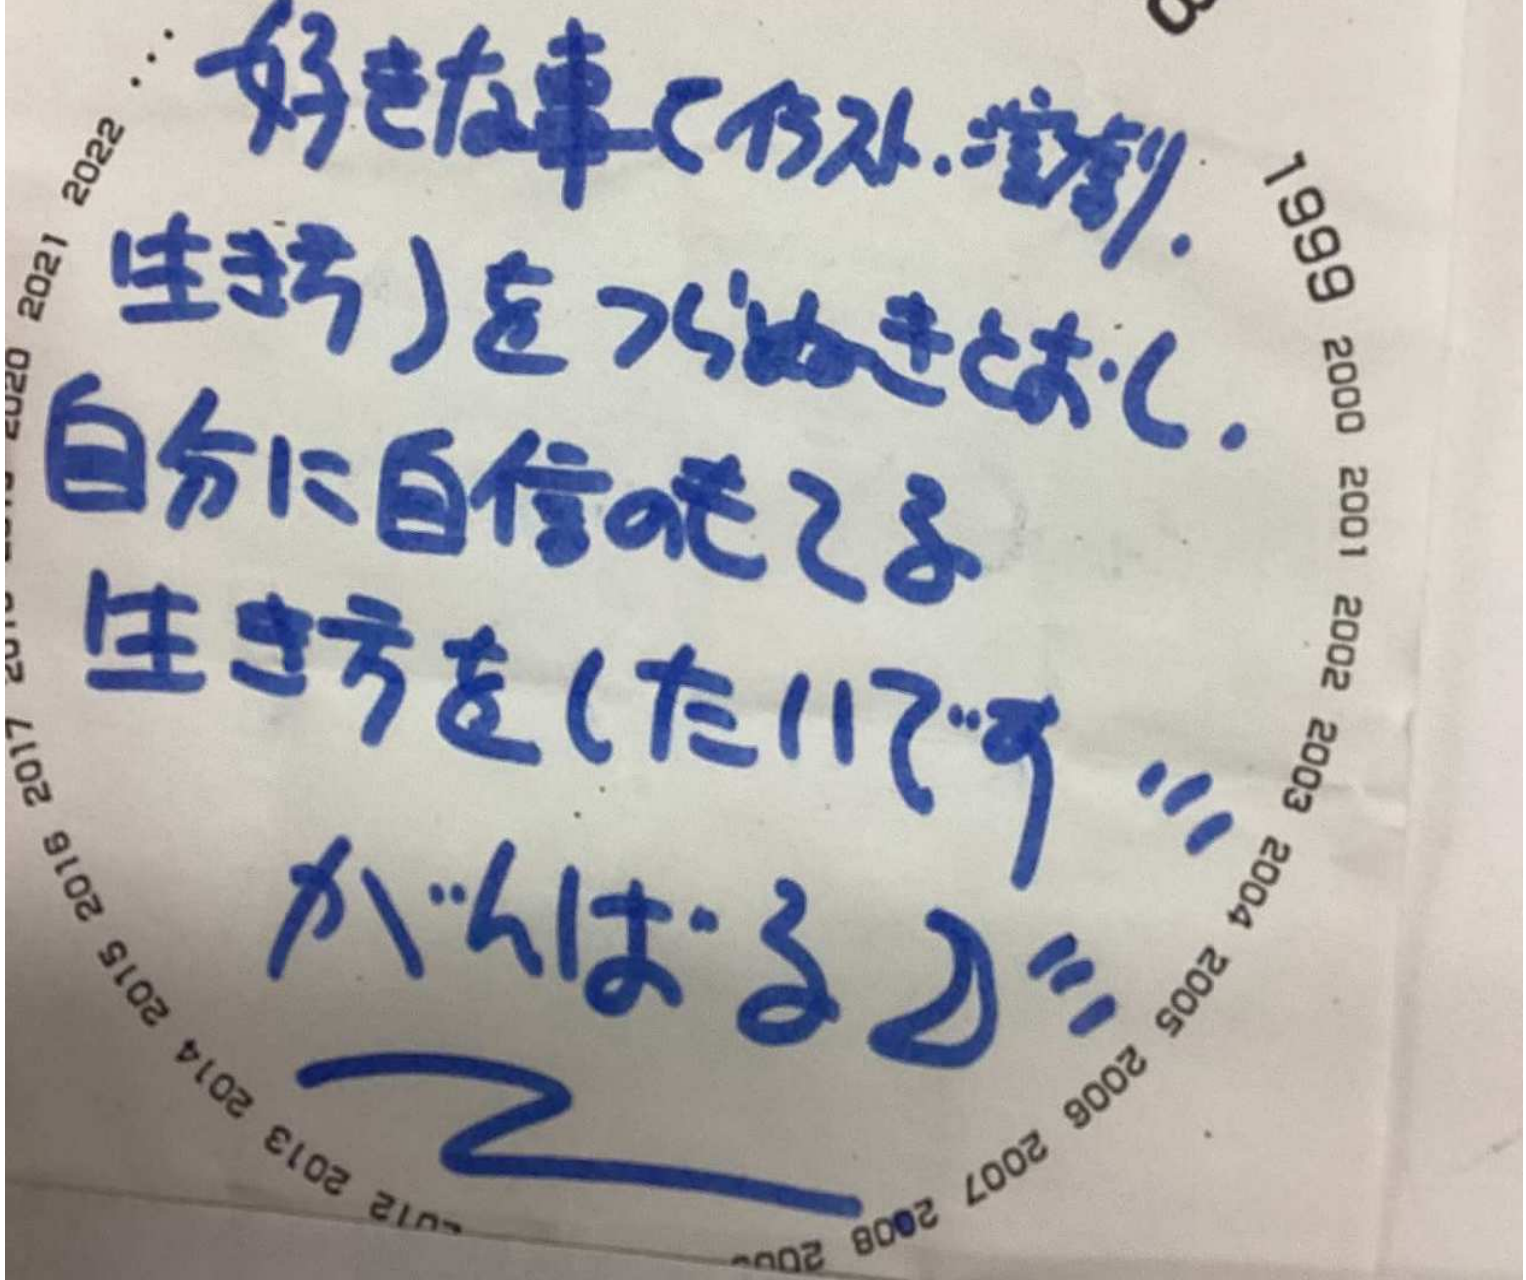 好きな事(イラスト.演劇.
生き方)をつらぬきとおし.
自分に自信のもてる
生き方をしたいです
がんばる♪
1999 2000 2001 2002 2003 2004 2005 2006 2007 2008
2013 2014 2015 2016 2017
2020 2021 2022 ...